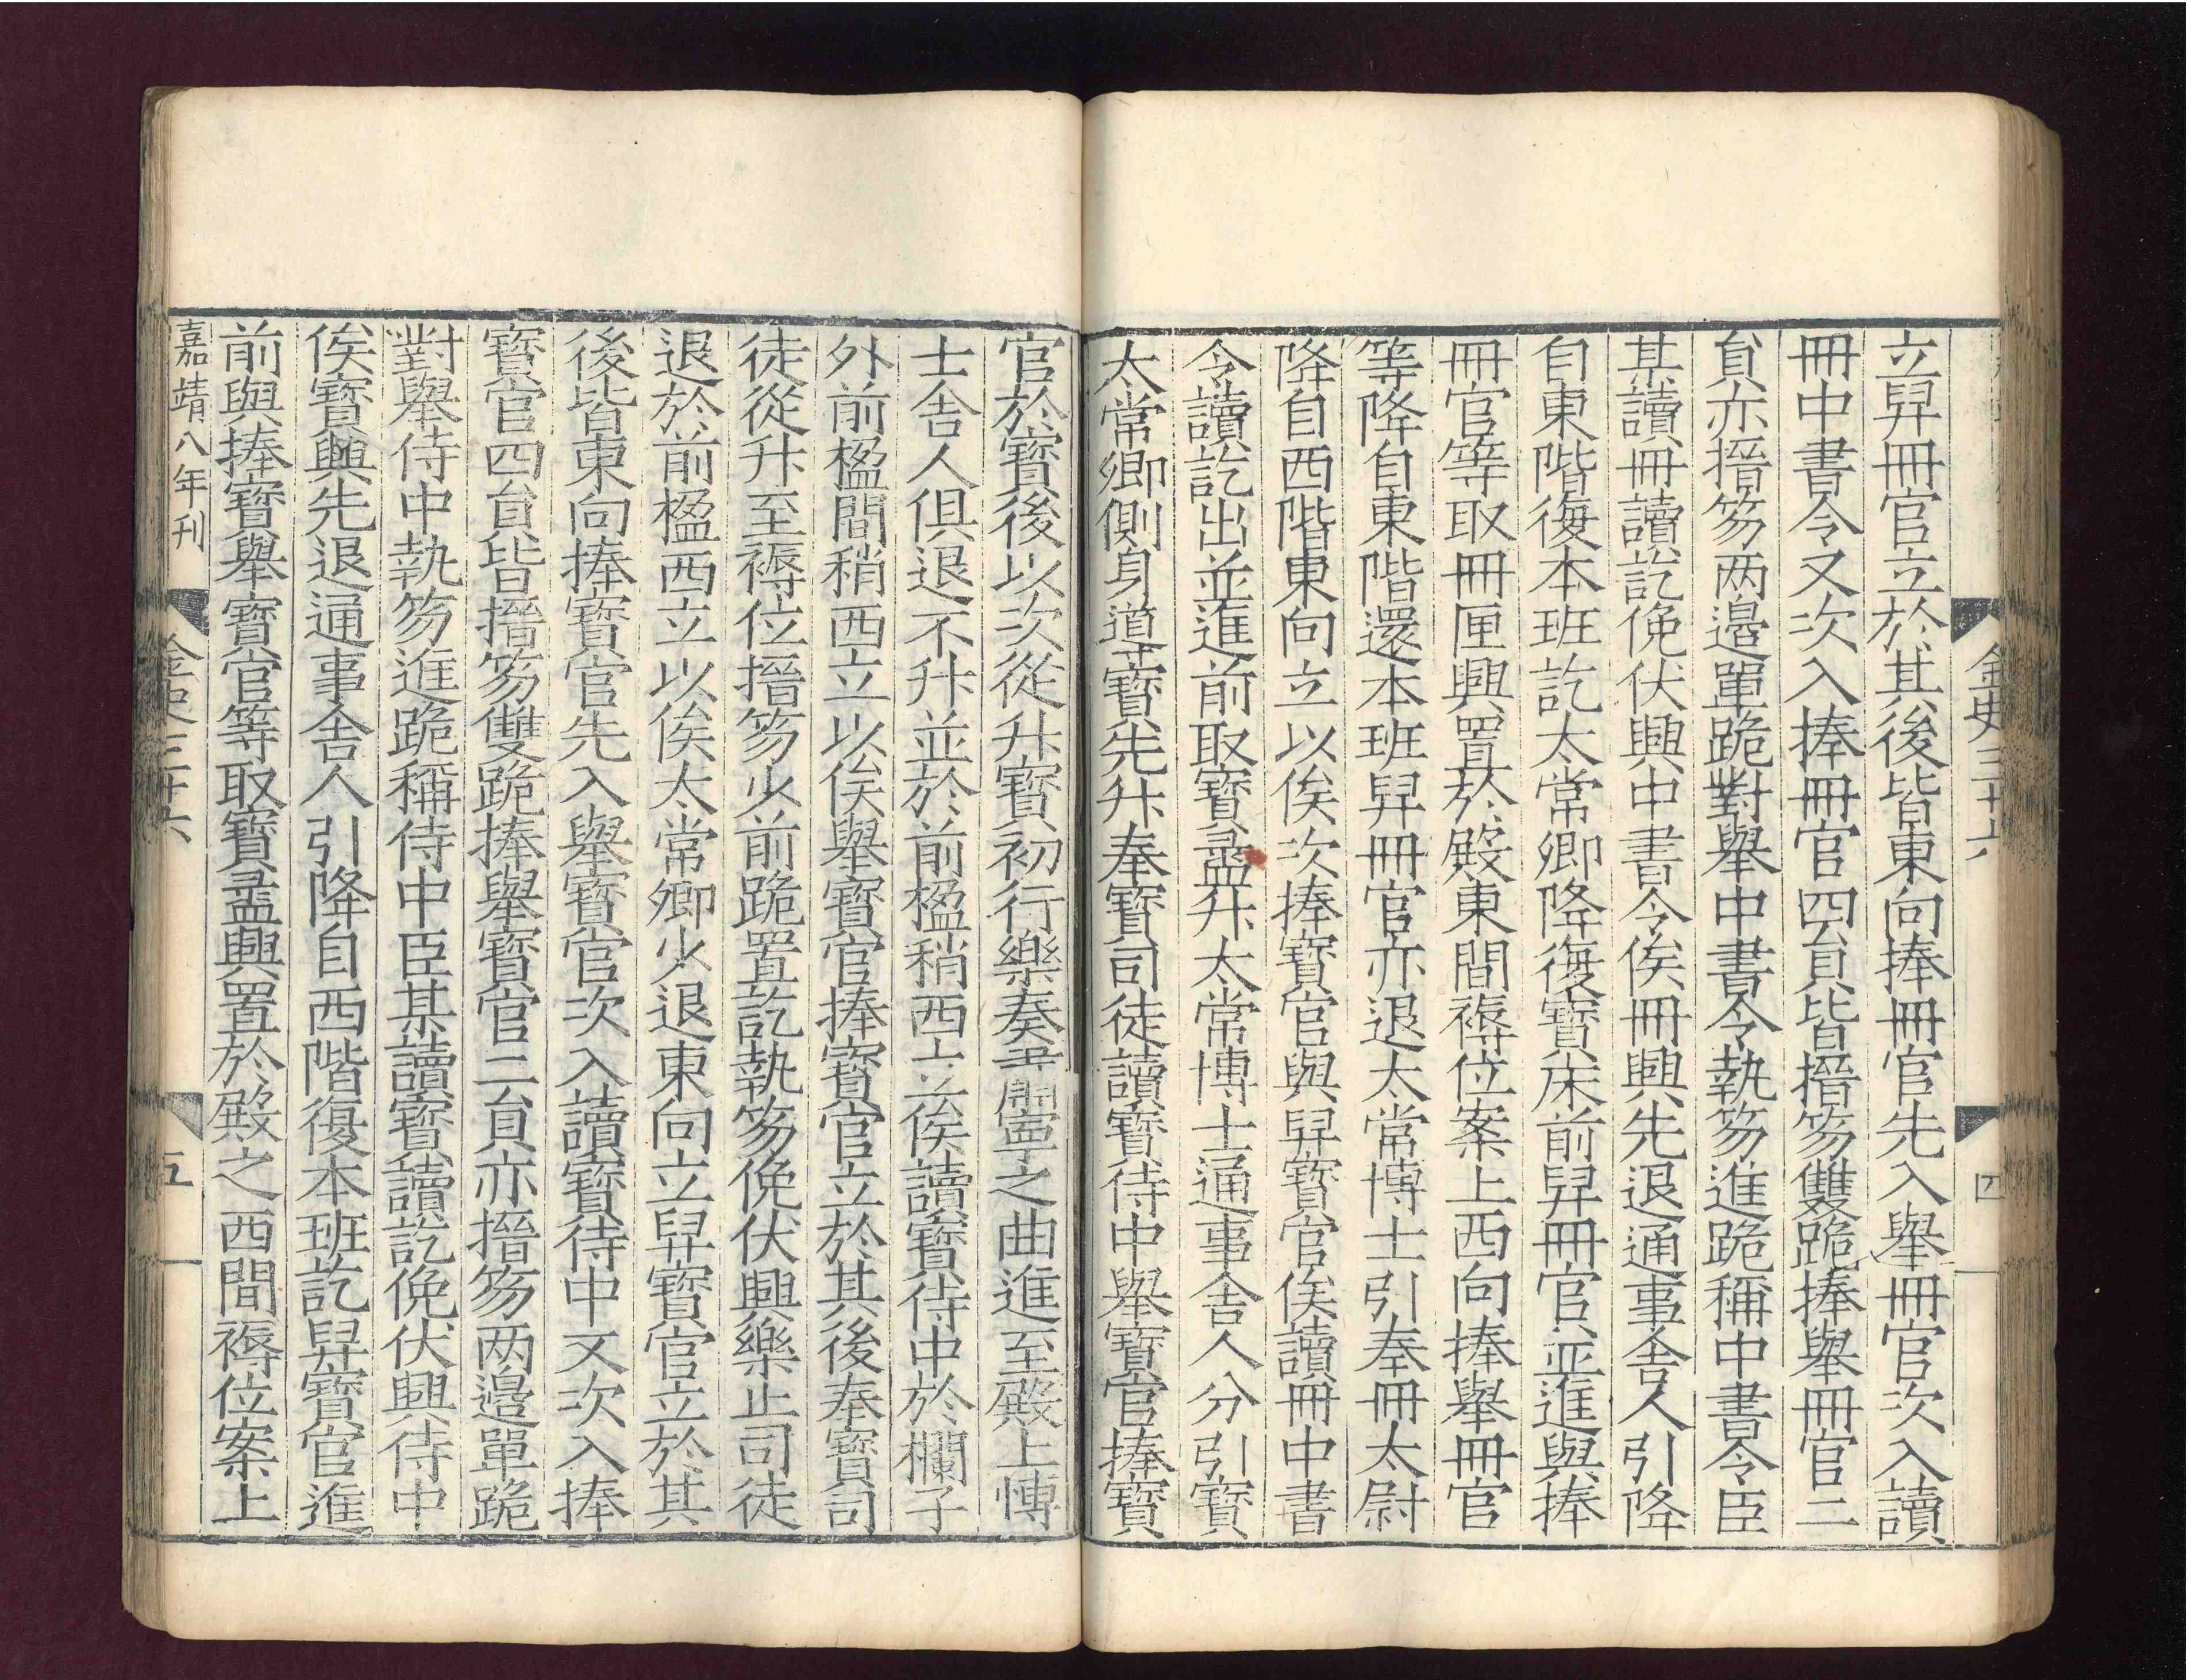 金史三十六
四
立舁冊官立於其後皆東向捧冊官先入舉冊官次入讀
冊中書令又次入捧冊官四員皆搢笏雙跪捧舉冊官二
員亦搢笏两邉單跪對舉中書令執笏進跪稱中書令臣
某讀冊讀訖俛伏興中書令俟冊興先退通事舎人引降
自東階復本班訖太常卿降復寳床前舁冊官並進與捧
冊官等取冊匣興置於殿東間褥位案上西向捧舉冊官
等降自東階還本班舁冊官亦退太常博士引奉冊太尉
降自西階東向立以俟次捧寳官與舁寳官俟讀冊中書
令讀訖出並進前取寳盝升太常博士通事舎人分引寳
太常卿側身導寳先升奉寳司徒讀寳侍中舉寳官捧寳
官於寳後以次從升寳初行樂奏肅寧之曲進至殿上博
士舎人俱退不升並於前楹稍西立俟讀寳侍中於欄子
外前楹間稍西立以俟舉寳官捧寳官立於其後奉寳司
徒從升至褥位搢笏少前跪置訖執笏俛伏興樂止司徒
退於前楹西立以俟太常卿少退東向立舁寳官立於其
後皆東向捧寳官先入舉寳官次入讀寳侍中又次入捧
寳官四員皆搢笏雙跪捧舉寳官二員亦搢笏两邉單跪
對舉侍中執笏進跪稱侍中臣某讀寳讀訖俛伏興侍中
俟寳興先退通事舎人引降自西階復本班訖舁寳官進
前與捧寳舉寳官等取寳盝興置於殿之西間褥位案上
嘉靖八年刊
金史三十六
五